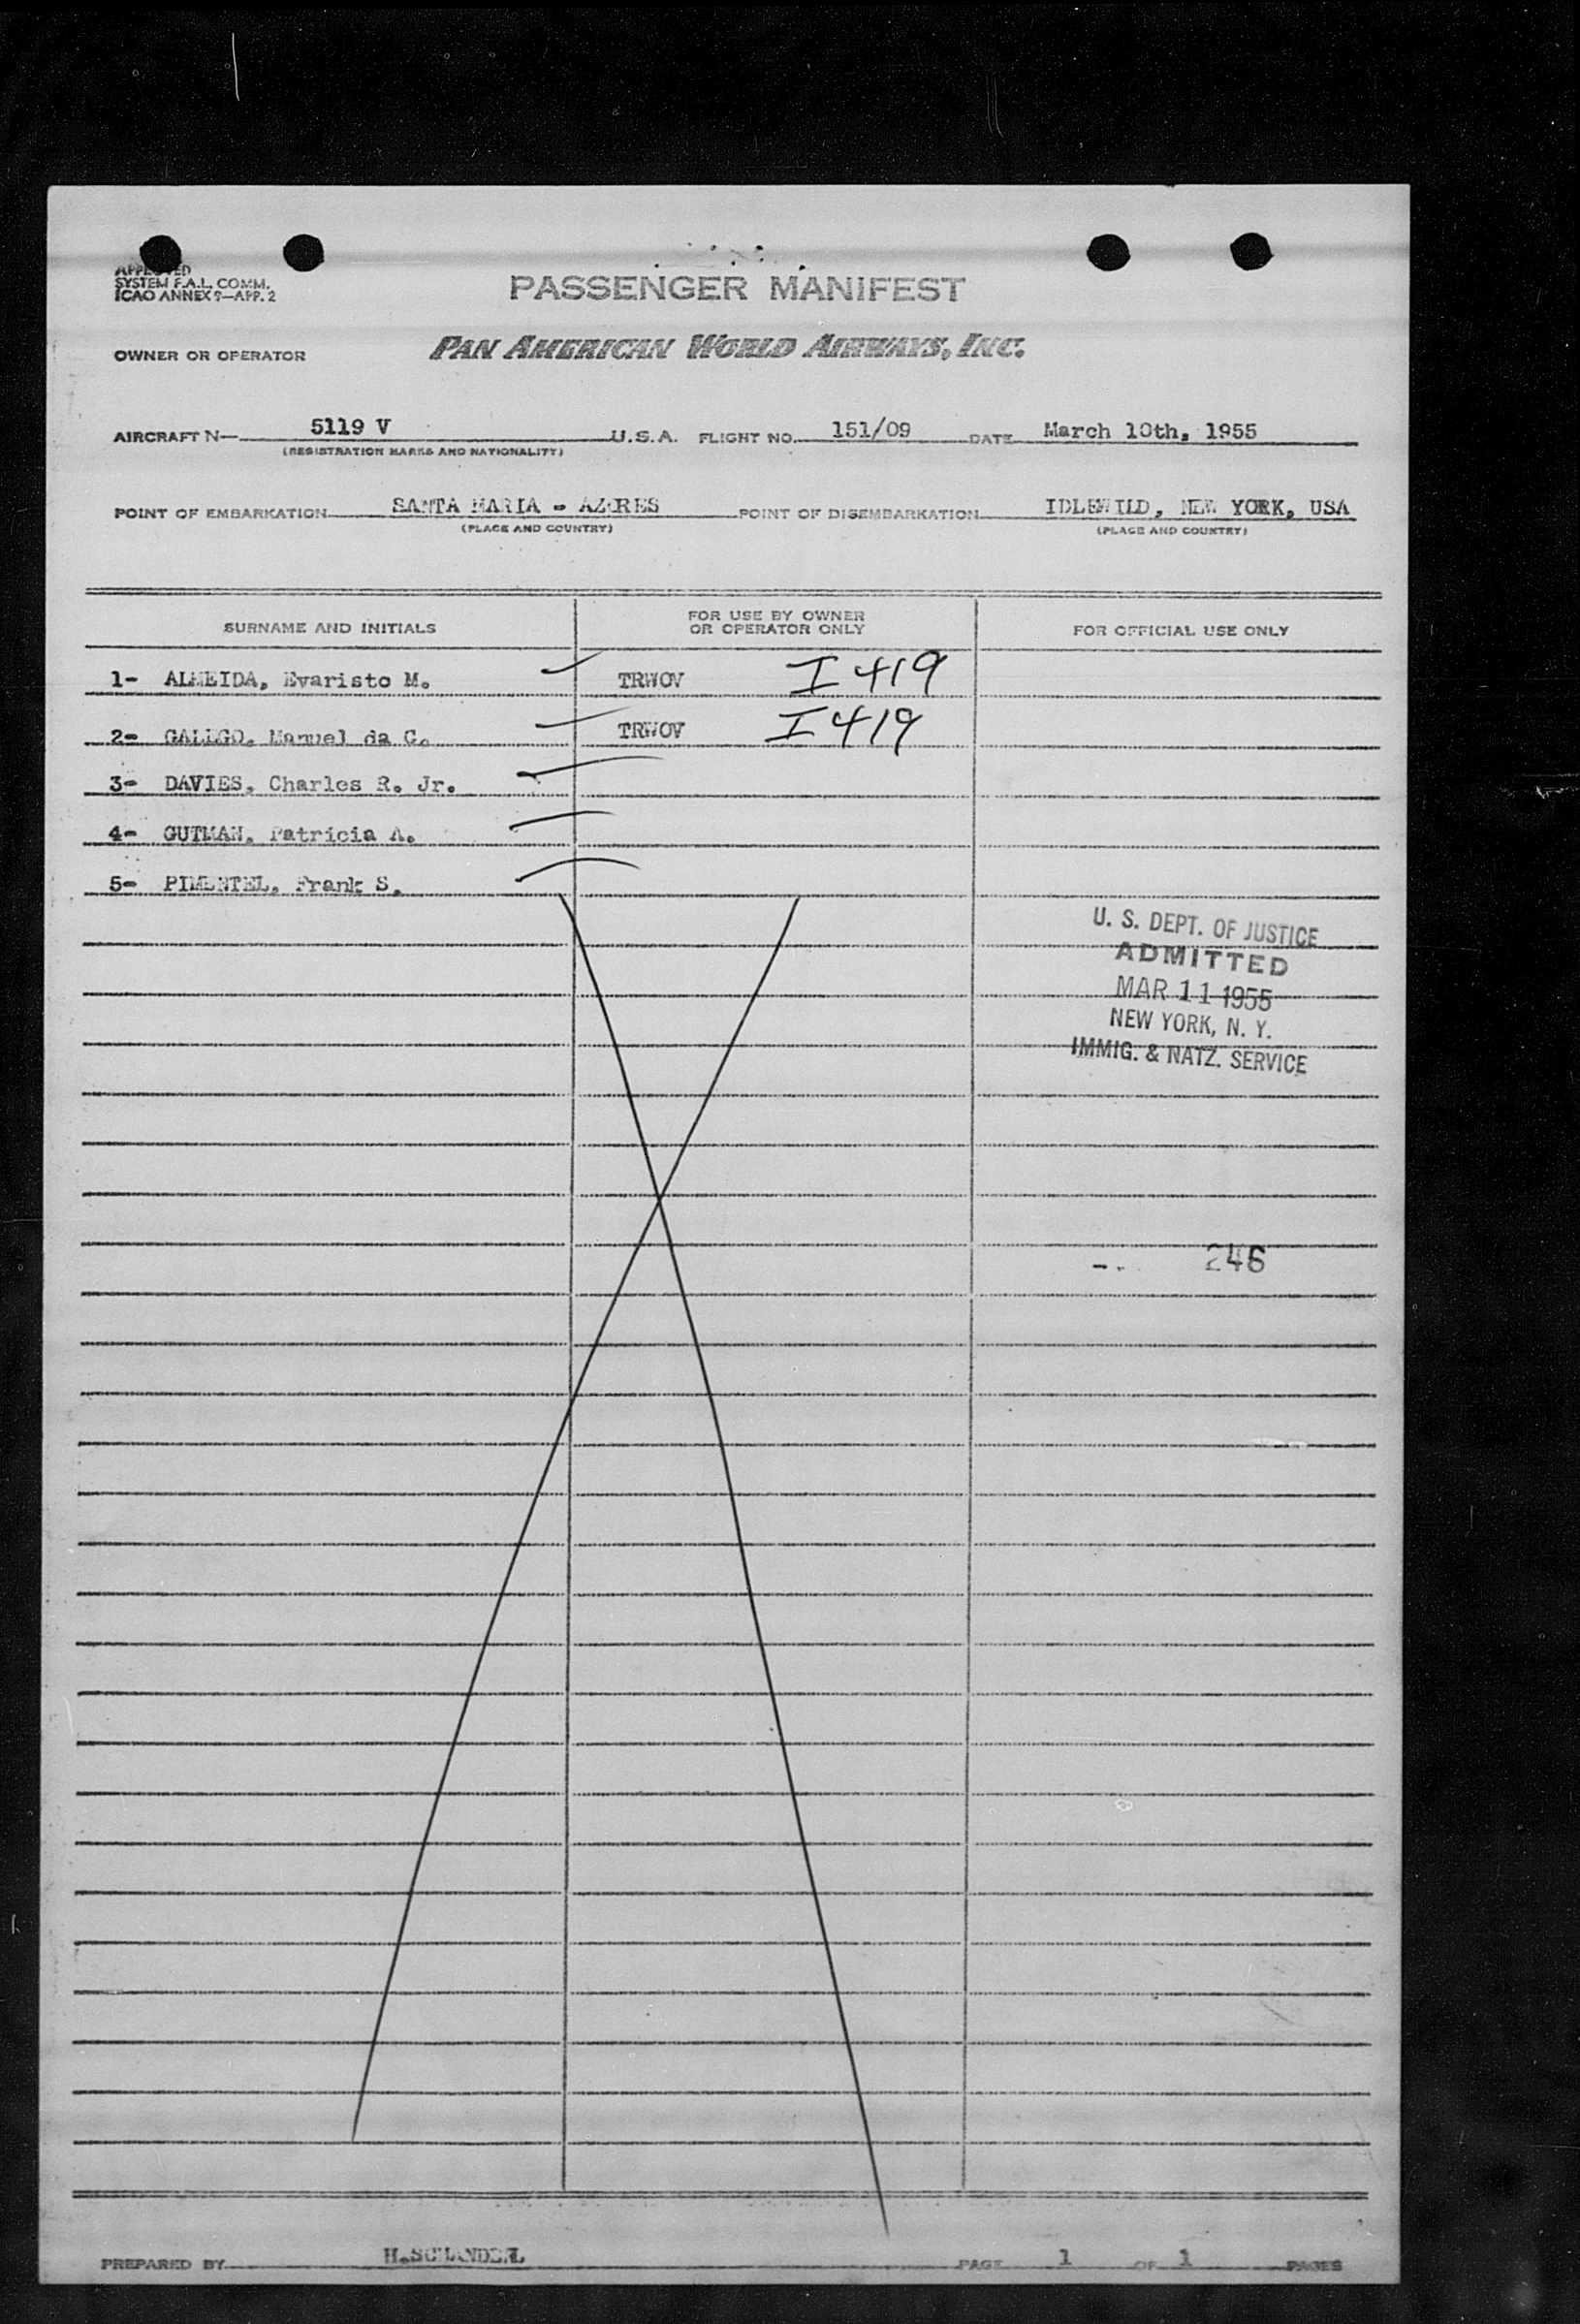 APPROVED
SYSTEM F.A.L. COMM.
ICAO ANNEX 9—APP. 2
PASSENGER MANIFEST
OWNER OR OPERATOR PAN AMERICAN WORLD AIRWAYS, INC.
AIRCRAFT N— 5119 V U.S.A. FLIGHT NO. 151/09 DATE March 10th, 1955
(REGISTRATION MARKS AND NATIONALITY)
POINT OF EMBARKATION SANTA MARIA - AZORES POINT OF DISEMBARKATION IDLEWILD, NEW YORK, USA
(PLACE AND COUNTRY) (PLACE AND COUNTRY)
SURNAME AND INITIALS FOR USE BY OWNER OR OPERATOR ONLY FOR OFFICIAL USE ONLY
1- ALMEIDA, Evaristo M. TRWOV I 419
2- GALEGO, Manuel da C. TRWOV I 419
3- DAVIES, Charles R. Jr.
4- GUTMAN, Patricia A.
5- PIMENTEL, Frank S.
U. S. DEPT. OF JUSTICE
ADMITTED
MAR 11 1955
NEW YORK, N. Y.
IMMIG. & NATZ. SERVICE
246
PREPARED BY PAGE 1 OF 1 PAGES